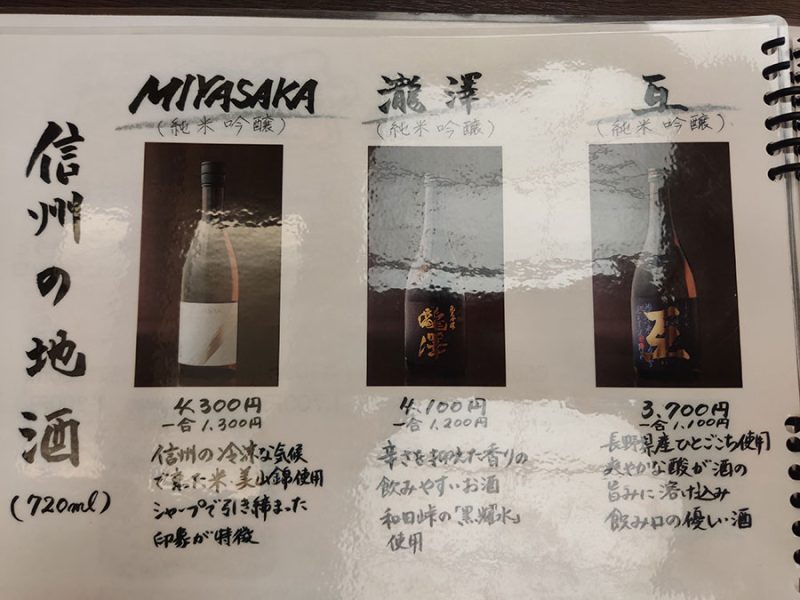 信州の地酒
(720ml)
MIYASAKA
(純米吟醸)
4.300円
一合1.300円
信州の冷涼な気候
で育った米・美山錦使用
シャープで引き締まった
印象が特徴
瀧澤
(純米吟醸)
瀧澤
4.100円
一合1.200円
辛さを抑えた香りの
飲みやすいお酒
和田峠の「黒耀水」
使用
互
(純米吟醸)
互
3.700円
一合1.100円
長野県産ひとごこち使用
爽やかな酸が酒の
旨みに溶け込み
飲み口の優しい酒